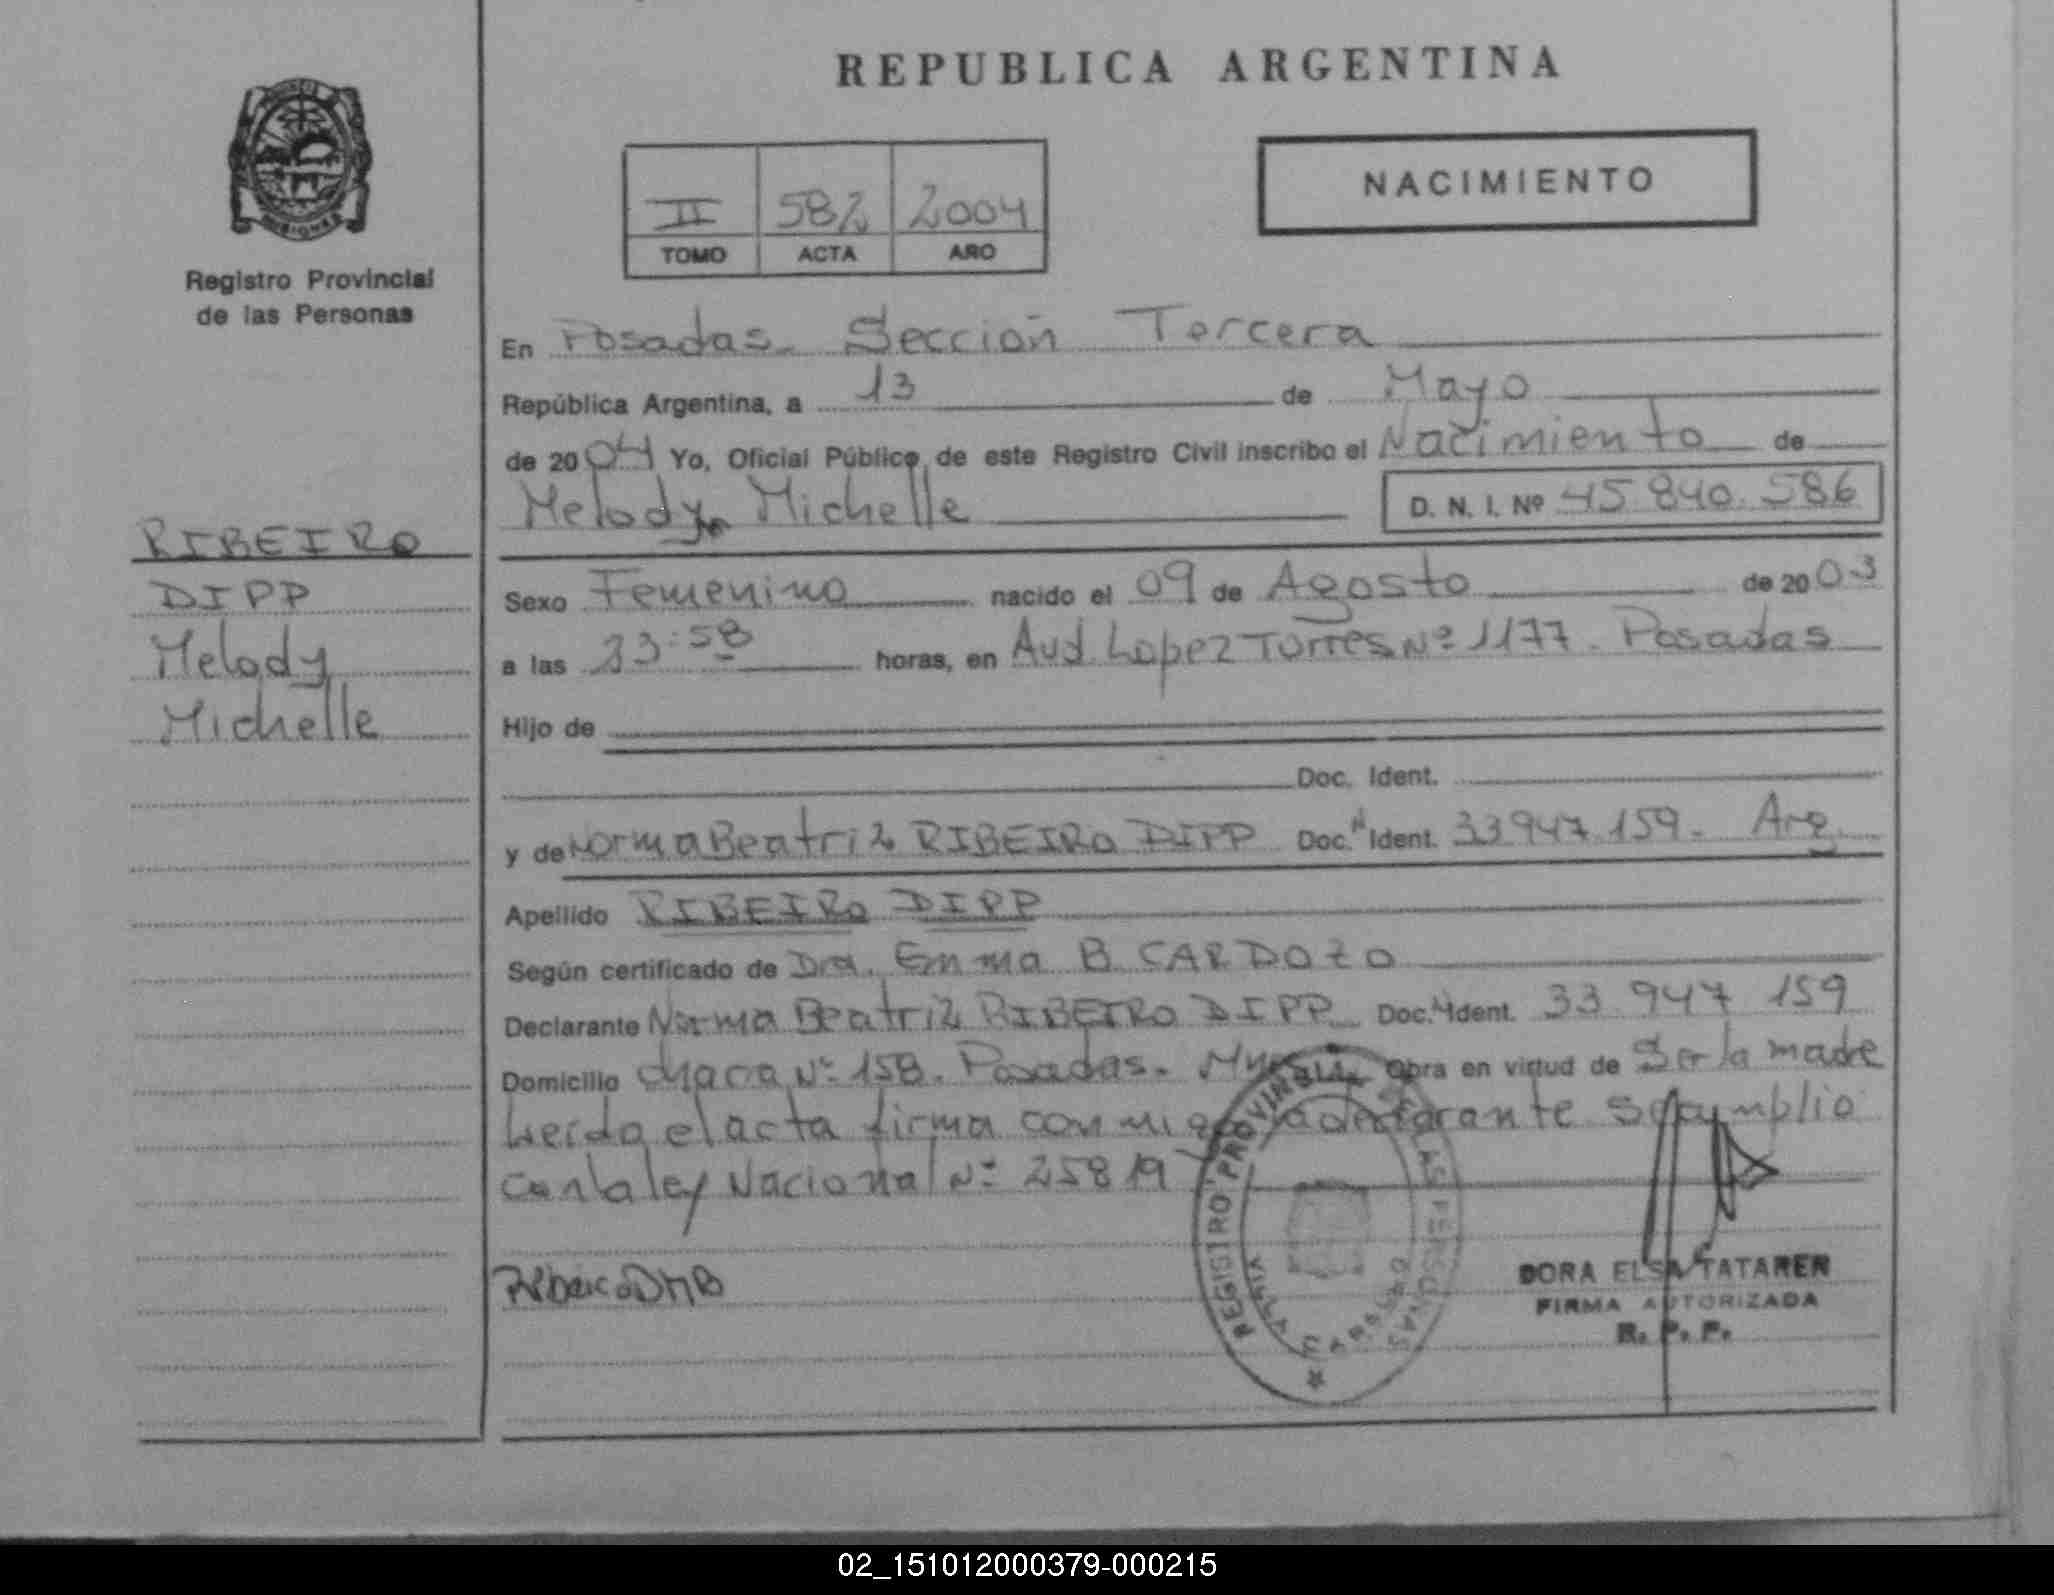 REPUBLICA ARGENTINA
NACIMIENTO
II 582 2004
TOMO ACTA AÑO
Registro Provincial
de las Personas
RIBEIRO
DIPP
Melody
Michelle
En Posadas Sección Tercera
República Argentina, a 13 de Mayo
de 2004 Yo, Oficial Público de este Registro Civil inscribo el Nacimiento de
Melody Michelle D. N. I. Nº 45 840. 586
Sexo Femenino nacido el 09 de Agosto de 2003
a las 23:58 horas, en Avd. Lopez Torres Nº 1177. Posadas
Hijo de
Doc. Ident.
y de Norma Beatriz RIBEIRO DIPP Doc. Ident. 33947 159. Arg.
Apellido RIBEIRO DIPP
Según certificado de Dra. Emma B. CARDOZO
Declarante Norma Beatriz RIBEIRO DIPP Doc. Ident. 33 947 159
Domicilio chacra Nº 158. Posadas. Obra en virtud de Ser la madre
Leida el acta firma con migo la declarante se cumplio
con la ley Nacional Nº 25819
REGISTRO PROVINCIAL DE LAS PERSONAS
DORA ELSA TATAREN
FIRMA AUTORIZADA
R. P. P.
02_151012000379-000215